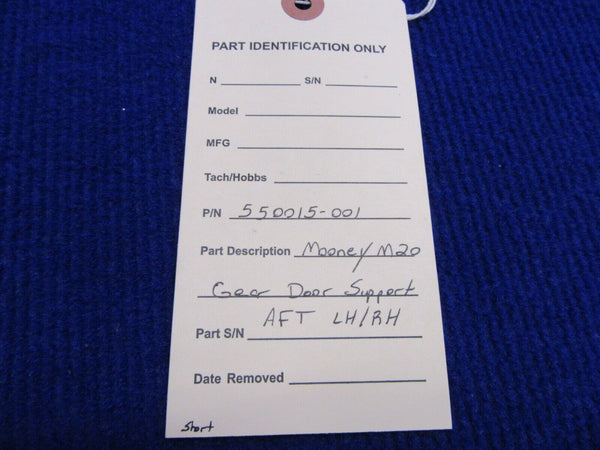 PART IDENTIFICATION ONLY
N ________ S/N ________
Model ________
MFG ________
Tach/Hobbs ________
P/N 550015-001
Part Description Mooney M20
Gear Door Support
AFT LH/RH
Part S/N ________
Date Removed ________
Short